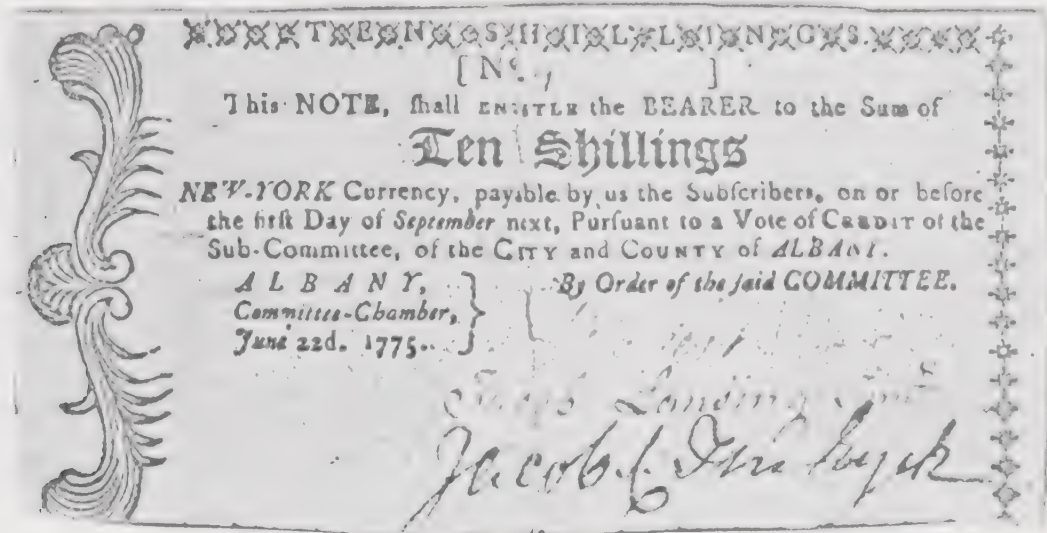 TEN SHILLINGS.
[No. ]
This NOTE, ſhall ENTITLE the BEARER to the Sum of
Ten Shillings
NEW-YORK Currency, payable by us the Subſcribers, on or before
the firſt Day of September next, Purſuant to a Vote of CREDIT of the
Sub-Committee, of the CITY and COUNTY of ALBANY.
ALBANY,
Committee-Chamber,
June 22d. 1775.
By Order of the ſaid COMMITTEE.
Lansing
Jacob C Ten Eyck